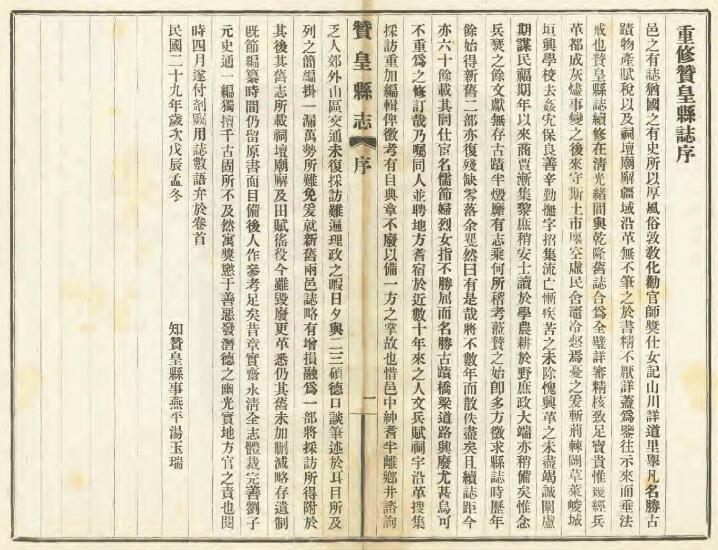 重修贊皇縣誌序
邑之有誌猶國之有史所以厚風俗敦敎化勸官師獎仕女記山川詳道里舉凡名勝古
蹟物產賦稅以及祠壇廟廨疆域沿革無不筆之於書精不厭詳蓋爲鑒往示來而垂法
戒也贊皇縣誌續修在清光緒間與乾隆舊誌合爲全璧詳審精核致足寶貴惟嫚經兵
革都成灰燼事變之後來守斯土市廛空虛民舍竈冷惄焉憂之爰斬荊棘闢草萊峻城
垣興學校去姦宄保良善辛勤撫字招集流亡慚疾苦之未除愧興革之未盡竭誠闢慮
期謀民福期年以來商賈漸集黎庶稍安士讀於學農耕於野庶政大端亦稍備矣惟念
兵燹之餘文獻無存古蹟半燬廳有志乘何所稽考蒞贊之始卽多方徵求縣誌時歷年
餘始得新舊二部亦復殘缺零落余瞿然曰有是哉將不數年而散佚盡矣且續誌距今
亦六十餘載其間仕宦名儒節婦烈女指不勝屈而名勝古蹟橋梁道路興廢尤甚烏可
不重爲之修訂哉乃囑同人並聘地方耆宿於近數十年來之人文兵賦祠宇沿革搜集
採訪重加編輯俾徵考有自典章不廢以備一方之掌故也惜邑中紳耆半離鄉井諮詢
贊皇縣志 序 一
乏人郊外山區交通未復採訪難遍理政之暇日夕與二三碩德口談筆述於耳目所及
列之簡編掛一漏萬勢所難免爰就新舊兩邑誌略有增損融爲一部將採訪所得附於
其後其舊志所載祠壇廟廨及田賦徭役今雖毀廢更革悉仍其舊未加刪減略存遺制
旣節編纂時間仍留原書面目備後人作參考足矣昔章實齋永清全志體裁完善劉子
元史通一編獨擅千古固所不及然寓獎懲于善惡發潛德之幽光實地方官之責也閱
時四月遂付剞劂用誌數語弁於卷首
民國二十九年歲次戊辰孟冬
知贊皇縣事燕平湯玉瑞